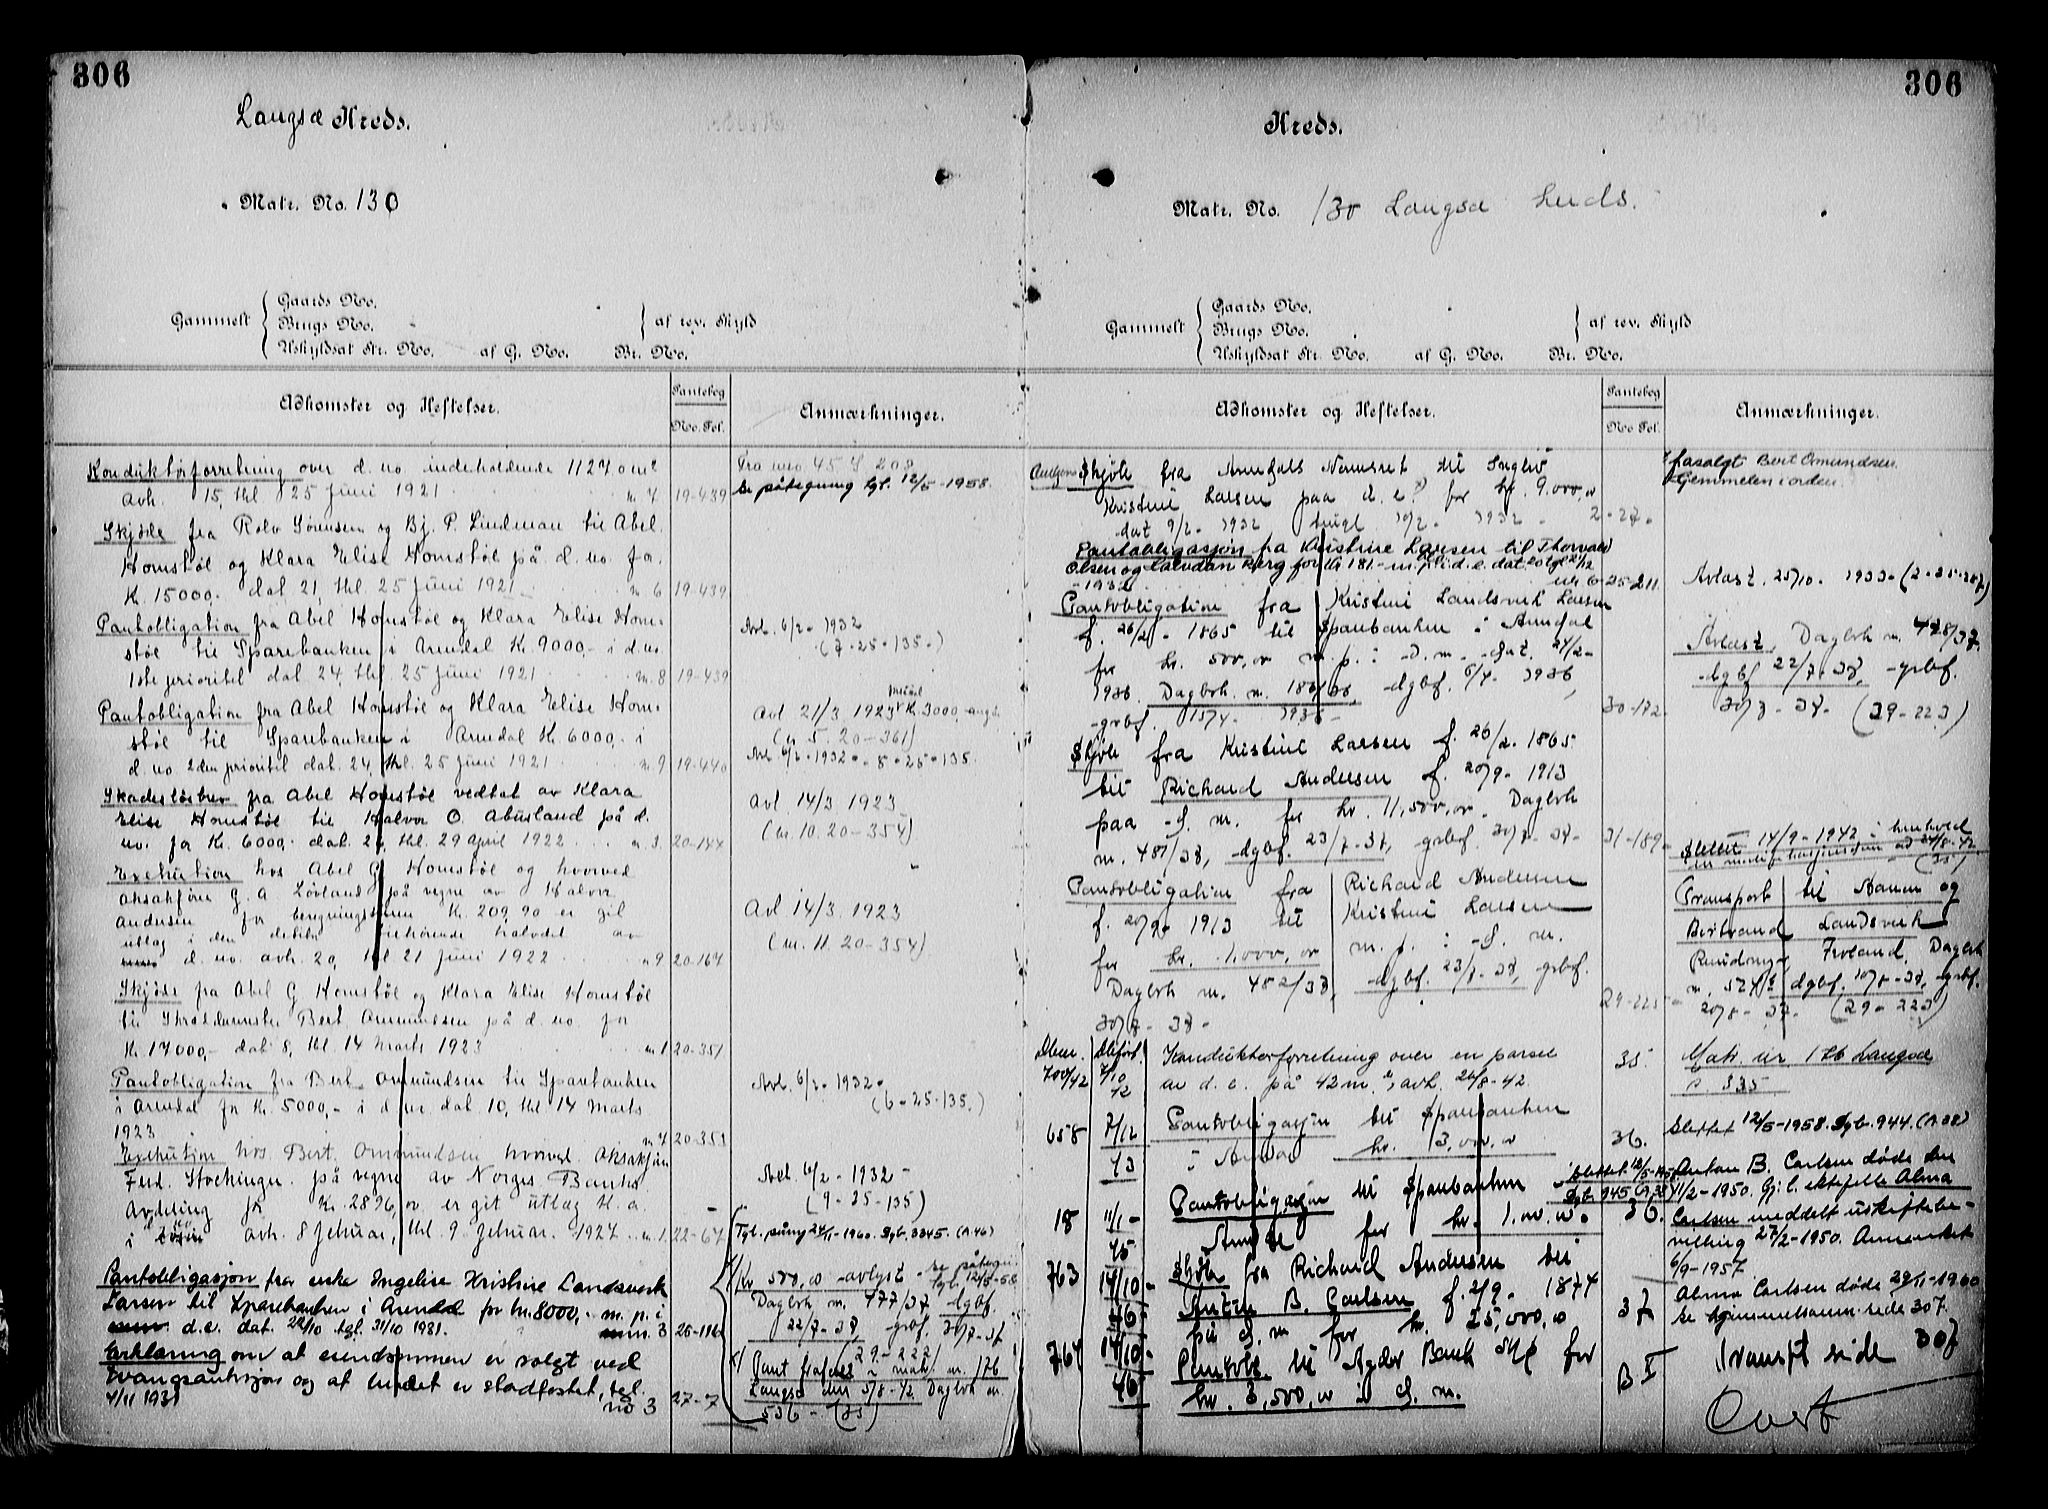 306
Langsæ Kreds.
Matr. No. 130
Gammelt
Gaards No.
Brugs No.
Uskyldsat Str. No. af G. No. Br. No.
af rev. Skyld
Adkomster og Heftelser.
Pantebog
No. Fol.
Anmærkninger.
Konduktørforretning over d. no. indeholdende 1127.0 m²
avh. 15, thl. 25 Juni 1921 n. 7 19-439
Fra mno 45 S 208
Se påtegning tgl. 12/5-1958.
Skjøde fra Rolv Sørensen og Bj. P. Lindman til Abel
Homstøl og Klara Elise Homstøl på d. no. for
Kr. 15000,- dat 21, thl. 25 Juni 1921 n 6 19-439
Pantobligation fra Abel Homstøl og Klara Elise Hom-
støl til Sparebanken i Arendal Kr. 9000,- i d. no
1ste prioritet dat 24, thl. 25 Juni 1921 n. 8 19-439
Avl. 6/2-1932
(7-25-135-)
Pantobligation fra Abel Homstøl og Klara Elise Hom-
støl til Sparebanken i Arendal Kr. 6000,- i
d. no. 2den prioritet dat. 24, thl. 25 Juni 1921 n. 9 19-440
Avl 21/3 1923 Kr. 3000,-
(n. 5. 20-361)
Avl 6/2-1932 - 8-25-135.
Skadesløsbrev fra Abel Homstøl vedtat av Klara
Elise Homstøl til Halvor O. Abusland på d.
no. for Kr. 6000,- dat. 2, thl. 29 April 1922 n. 3. 20-144
Avl. 14/3 1923
(n. 10. 20-354)
Exekution hos Abel G. Homstøl og hvorved
O.r.sakfører G. A. Løvland på vegne av Halvor
Andersen for beregningssum Kr. 209,90 er git
utlæg i den debitor tilhørende halvdel av
d. no. avh. 20, thl 21 Juni 1922 n 9 20-167
Avl 14/3. 1923
(n. 11. 20-354)
Skjøde fra Abel G Homstøl og Klara Elise Homstøl
til Skræddermester Bert. Ommundsen på d. no. for
Kr. 17000,- dat 8, thl. 14 Marts 1923 n. 1 20-351
Pantobligation fra Bert. Ommundsen til Sparebanken
i Arendal for Kr. 5000,- i d. nr. dat 10, thl 14 Marts
1923 n. 7 20-351
Avl. 6/2-1932.
(6-25-135.)
Exekution hos Bert. Ommundsen hvorved O.r.sakfører
Ferd. Stockinger på vegne av Norges Banks
Avdeling for Kr. 2896,00 er git utlæg bl. a.
i d. no avh. 8 februar, thl. 9. februar 1927 n. 1. 22-67
Avl. 6/2-1932-
(9-25-135)
Tgl. påny 24/11-1960. Dgb. 3345. (A.46)
Pantobligasjon fra enke Ingelise Kristine Landsverk
Larsen til Sparebanken i Arendal for kr. 8000,- m. p. i
d. e. dat. 22/10 tgl. 31/10 1931. num. 3 25-116
Kr. 500,00 avlyst - se påtegn. tgl. 12/5-58
Dagbok nr. 477/37 dgbf.
22/7-37, grbf. 30/7-37
(29-222)
Erklæring om at eiendommen er solgt ved
tvangsauksjon og at budet er stadfestet, tgl.
4/11 1931 no 3 27-7
Pant frafaldt i matr. nr. 176
Langsæ den 5/8-42 Dagbok nr.
536 - (35)
306
Kreds.
Matr. No. 130 Langsæ kreds.
Gammelt
Gaards No.
Brugs No.
Uskyldsat Str. No. af G. No. Br. No.
af rev. Skyld
Adkomster og Heftelser.
Pantebog
No. Fol.
Anmærkninger.
Auksjons Skjøte fra Arendals Namsret til Ingelise
Kristine Larsen paa d. e. for kr. 9.000,00
dat 9/2-1932 tingl. 10/2-1932 2-27-
frasolgt Bert Omundsen.
Hjemmelen i orden.
Pantobligasjon fra Kristine Larsen til Thorvald
Olsen og Halvdan Berg for kr 181.- m. pli. d. e. dat. 20 tgl. 21/12
-1932 nr 6 25-211
Avlæst. 25/10. 1933- (2-25-287)
Pantobligation fra Kristine Landsverk Larsen
f. 26/2-1865 til Sparebanken i Arendal
for kr. 500,00 m. p. i d. m. dat. 24/2-
1936 Dagbok nr. 186/36, dgbf. 6/4-1936,
grbf. 15/4-1936- 30-172
Avlæst, Dagbok nr. 478/37
dgbf 22/7-37, grbf.
30/7-37- (29-223)
Skjøte fra Kristine Larsen f. 26/2-1865
til Richard Andersen f. 20/9-1913
paa d. m. for kr. 11,500,00. Dagbok
nr. 481/37, dgbf. 23/7-37, grbf. 30/7-37- 31-189-
Pantobligation fra Richard Andersen
f. 20/9-1913 til Kristine Larsen
for kr. 1.000,00 m. p. i d. m.
Dagbok nr. 482/37, dgbf. 23/7-37, grbf.
30/7-37- 29-225-
Slettet 14/9-1942 i henhold
til 24/8-42
(35)
Transport til Aanen og
Bertrand Landsverk
Froland, Dagbok
nr. 524/37 dgbf. 10/8-37, grbf.
20/8-37- (29-223)
700/42 7/10 42 Konduktørforretning over en parsel
av d. e. på 42 m², avh. 24/8-42. 35.
Matr. nr. 176 Langsæ
s. 335
658 7/12 43 Pantobligasjon til Sparebanken
i Arendal kr. 3,000,00 36.
Slettet 12/5-1958. Dgb. 944. (A.38)
18 11/1-45 Pantobligasjon til Sparebanken
Arendal for kr. 1.000,00. 36.
Slettet 12/5-1958
Dgb. 945 (A.38)
Anton B. Carlsen døde den
11/2-1950. Gj. l. ektefelle Alma
Carlsen meddelt uskiftebe-
villing 27/2-1950. Anmerket
6/9-1957
763 14/10-46 Skjøte fra Richard Andersen til
Anton B. Carlsen f. 2/9-1874
på d. m for kr. 25,000,00 37
Alma Carlsen døde 29/11-1960
se hjemmelsanm. side 307.
764 14/10-46 Pantobl. til Agder Bank for
kr. 3,500,00 i d. m. B I
Transpt side 307
Overf